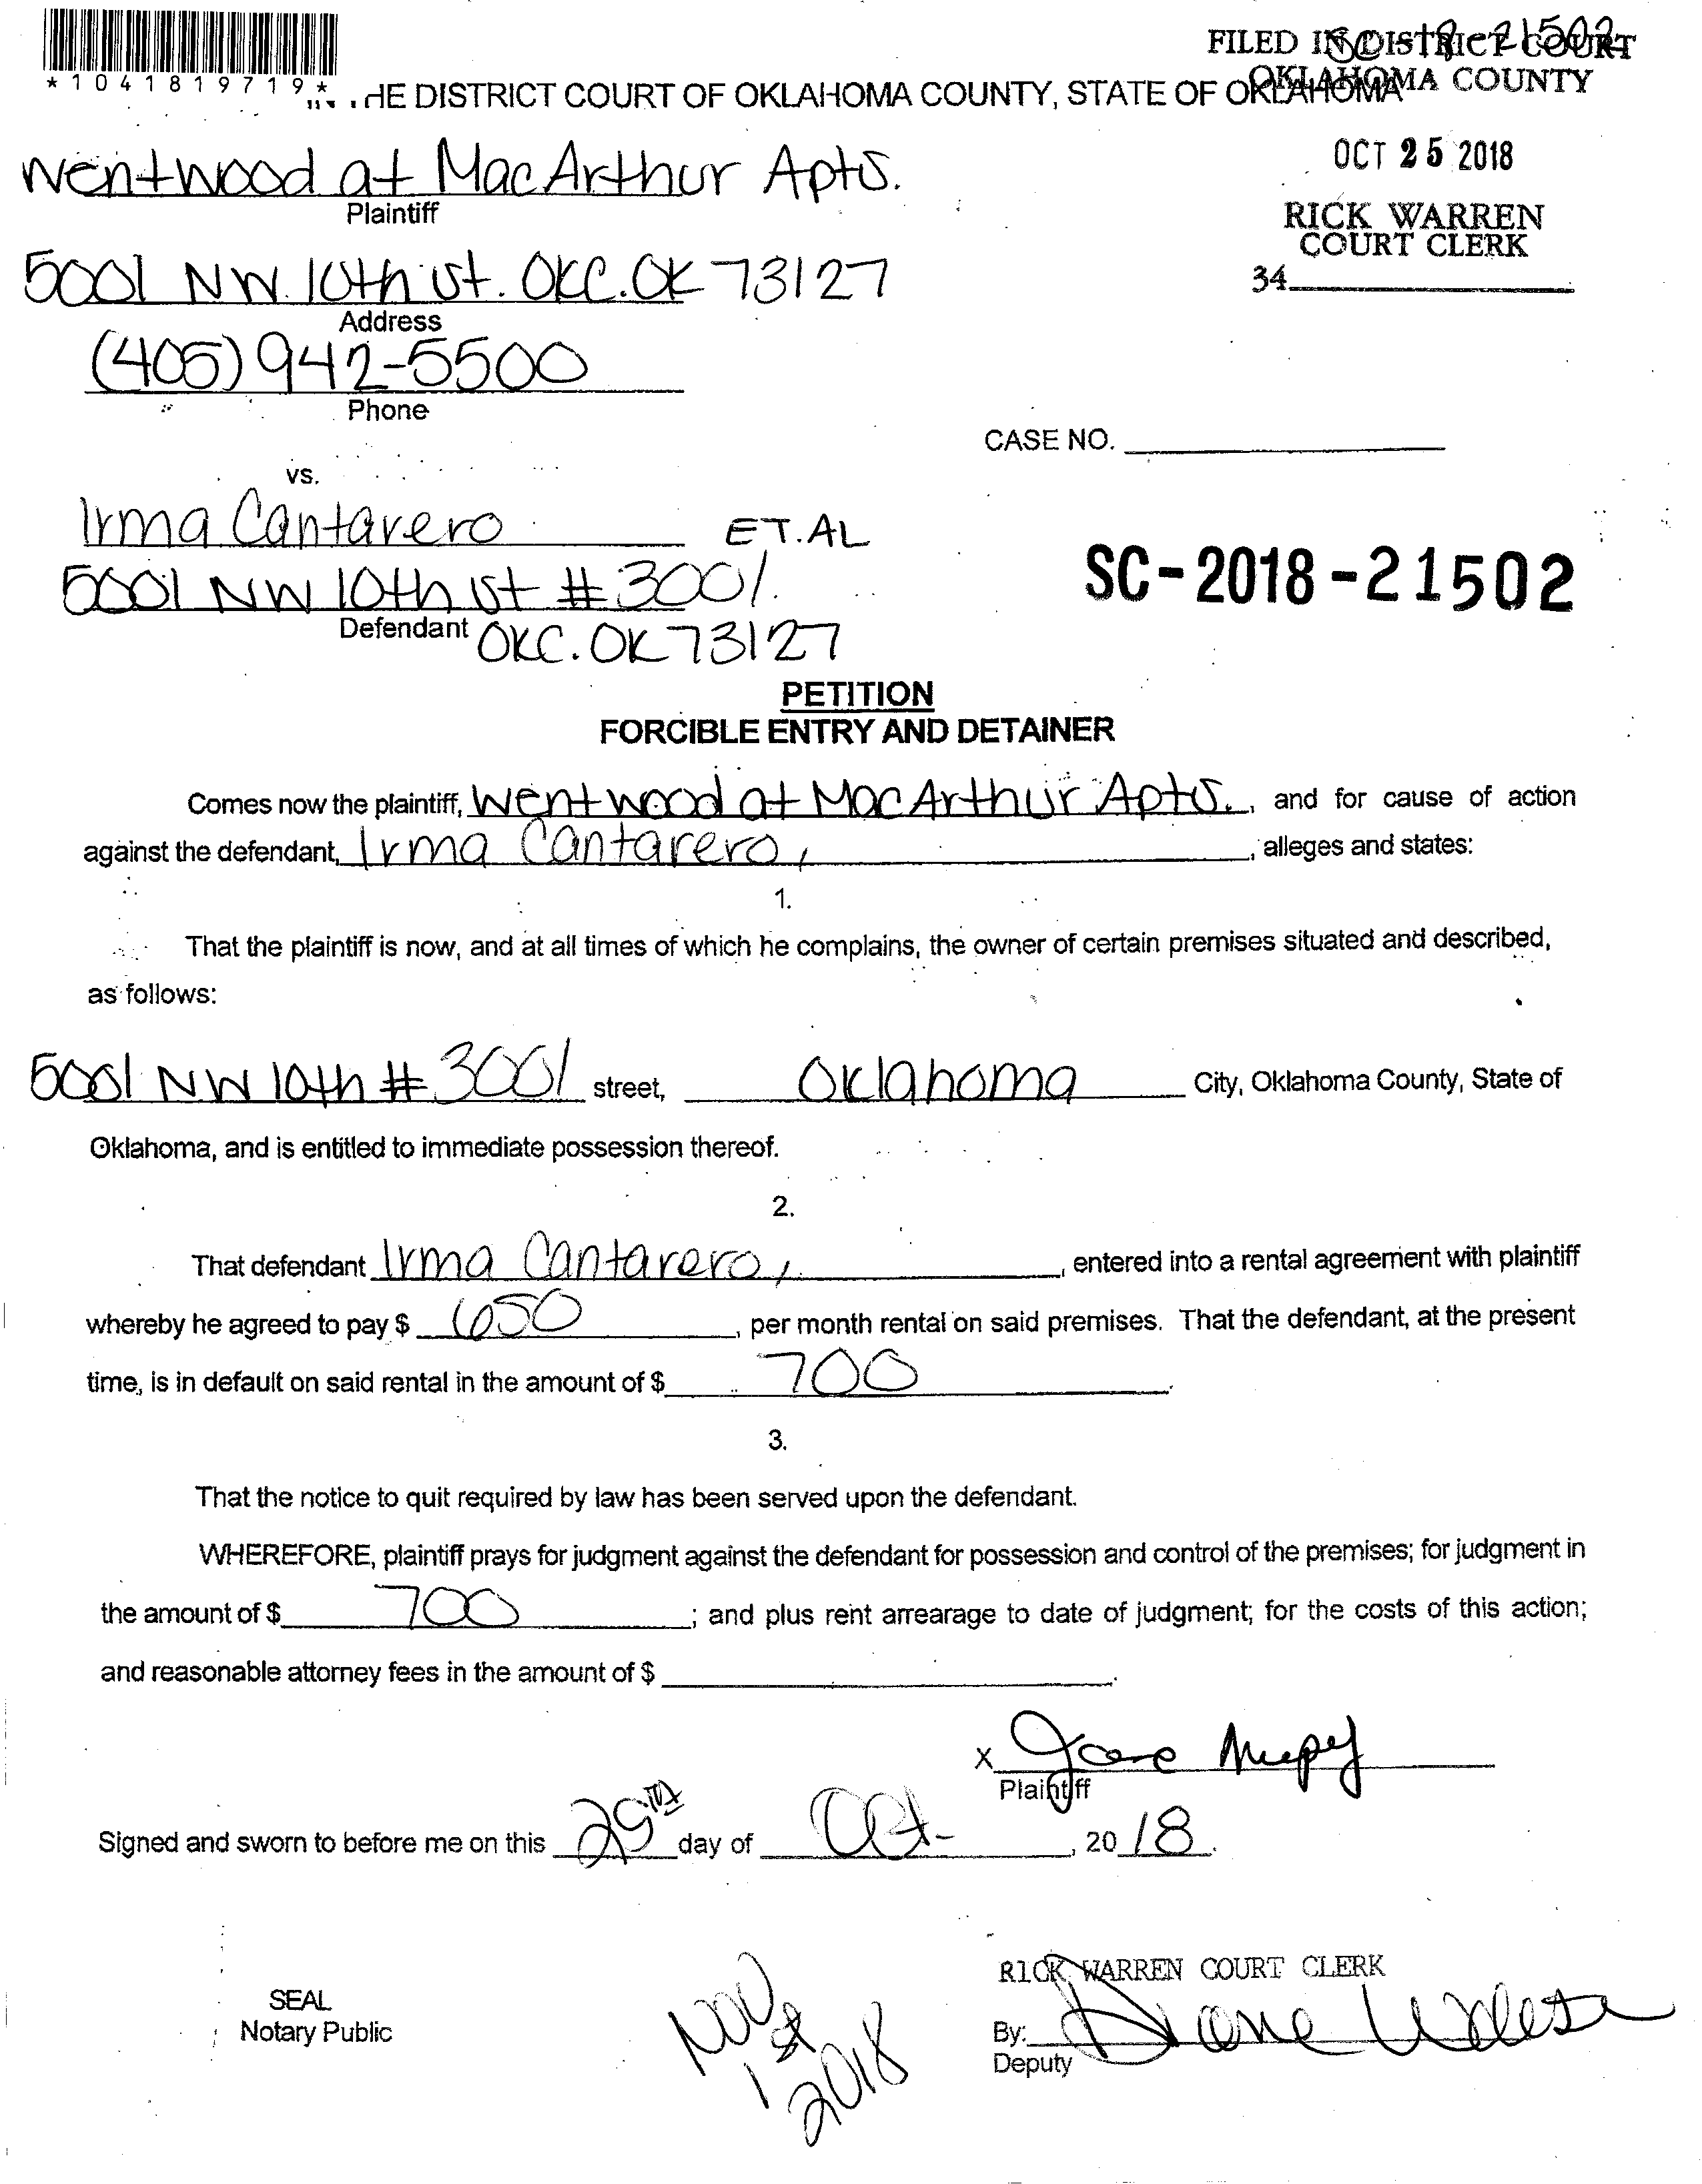 *1041819719*
FILED IN DISTRICT COURT
OKLAHOMA COUNTY
HE DISTRICT COURT OF OKLAHOMA COUNTY, STATE OF OKLAHOMA
OCT 25 2018
RICK WARREN
COURT CLERK
34
Wentwood at MacArthur Apts.
Plaintiff
5001 NW 10th st. OKC. OK 73127
Address
(405) 942-5500
Phone
CASE NO.
vs.
Irma Cantarero ET. AL
5001 NW 10th st # 3001.
SC-2018-21502
Defendant OKC. OK 73127
PETITION
FORCIBLE ENTRY AND DETAINER
Comes now the plaintiff, Wentwood at MacArthur Apts., and for cause of action
against the defendant, Irma Cantarero, , alleges and states:
1.
That the plaintiff is now, and at all times of which he complains, the owner of certain premises situated and described,
as follows:
5001 NW 10th # 3001 street, Oklahoma City, Oklahoma County, State of
Oklahoma, and is entitled to immediate possession thereof.
2.
That defendant Irma Cantarero, , entered into a rental agreement with plaintiff
whereby he agreed to pay $ 650 , per month rental on said premises. That the defendant, at the present
time, is in default on said rental in the amount of $ 700 .
3.
That the notice to quit required by law has been served upon the defendant.
WHEREFORE, plaintiff prays for judgment against the defendant for possession and control of the premises; for judgment in
the amount of $ 700 ; and plus rent arrearage to date of judgment; for the costs of this action;
and reasonable attorney fees in the amount of $ .
X
Plaintiff
Signed and sworn to before me on this 25th day of Oct- , 20 18 .
RICK WARREN COURT CLERK
SEAL
Notary Public
Nov 1st 2018
By: Diane
Deputy